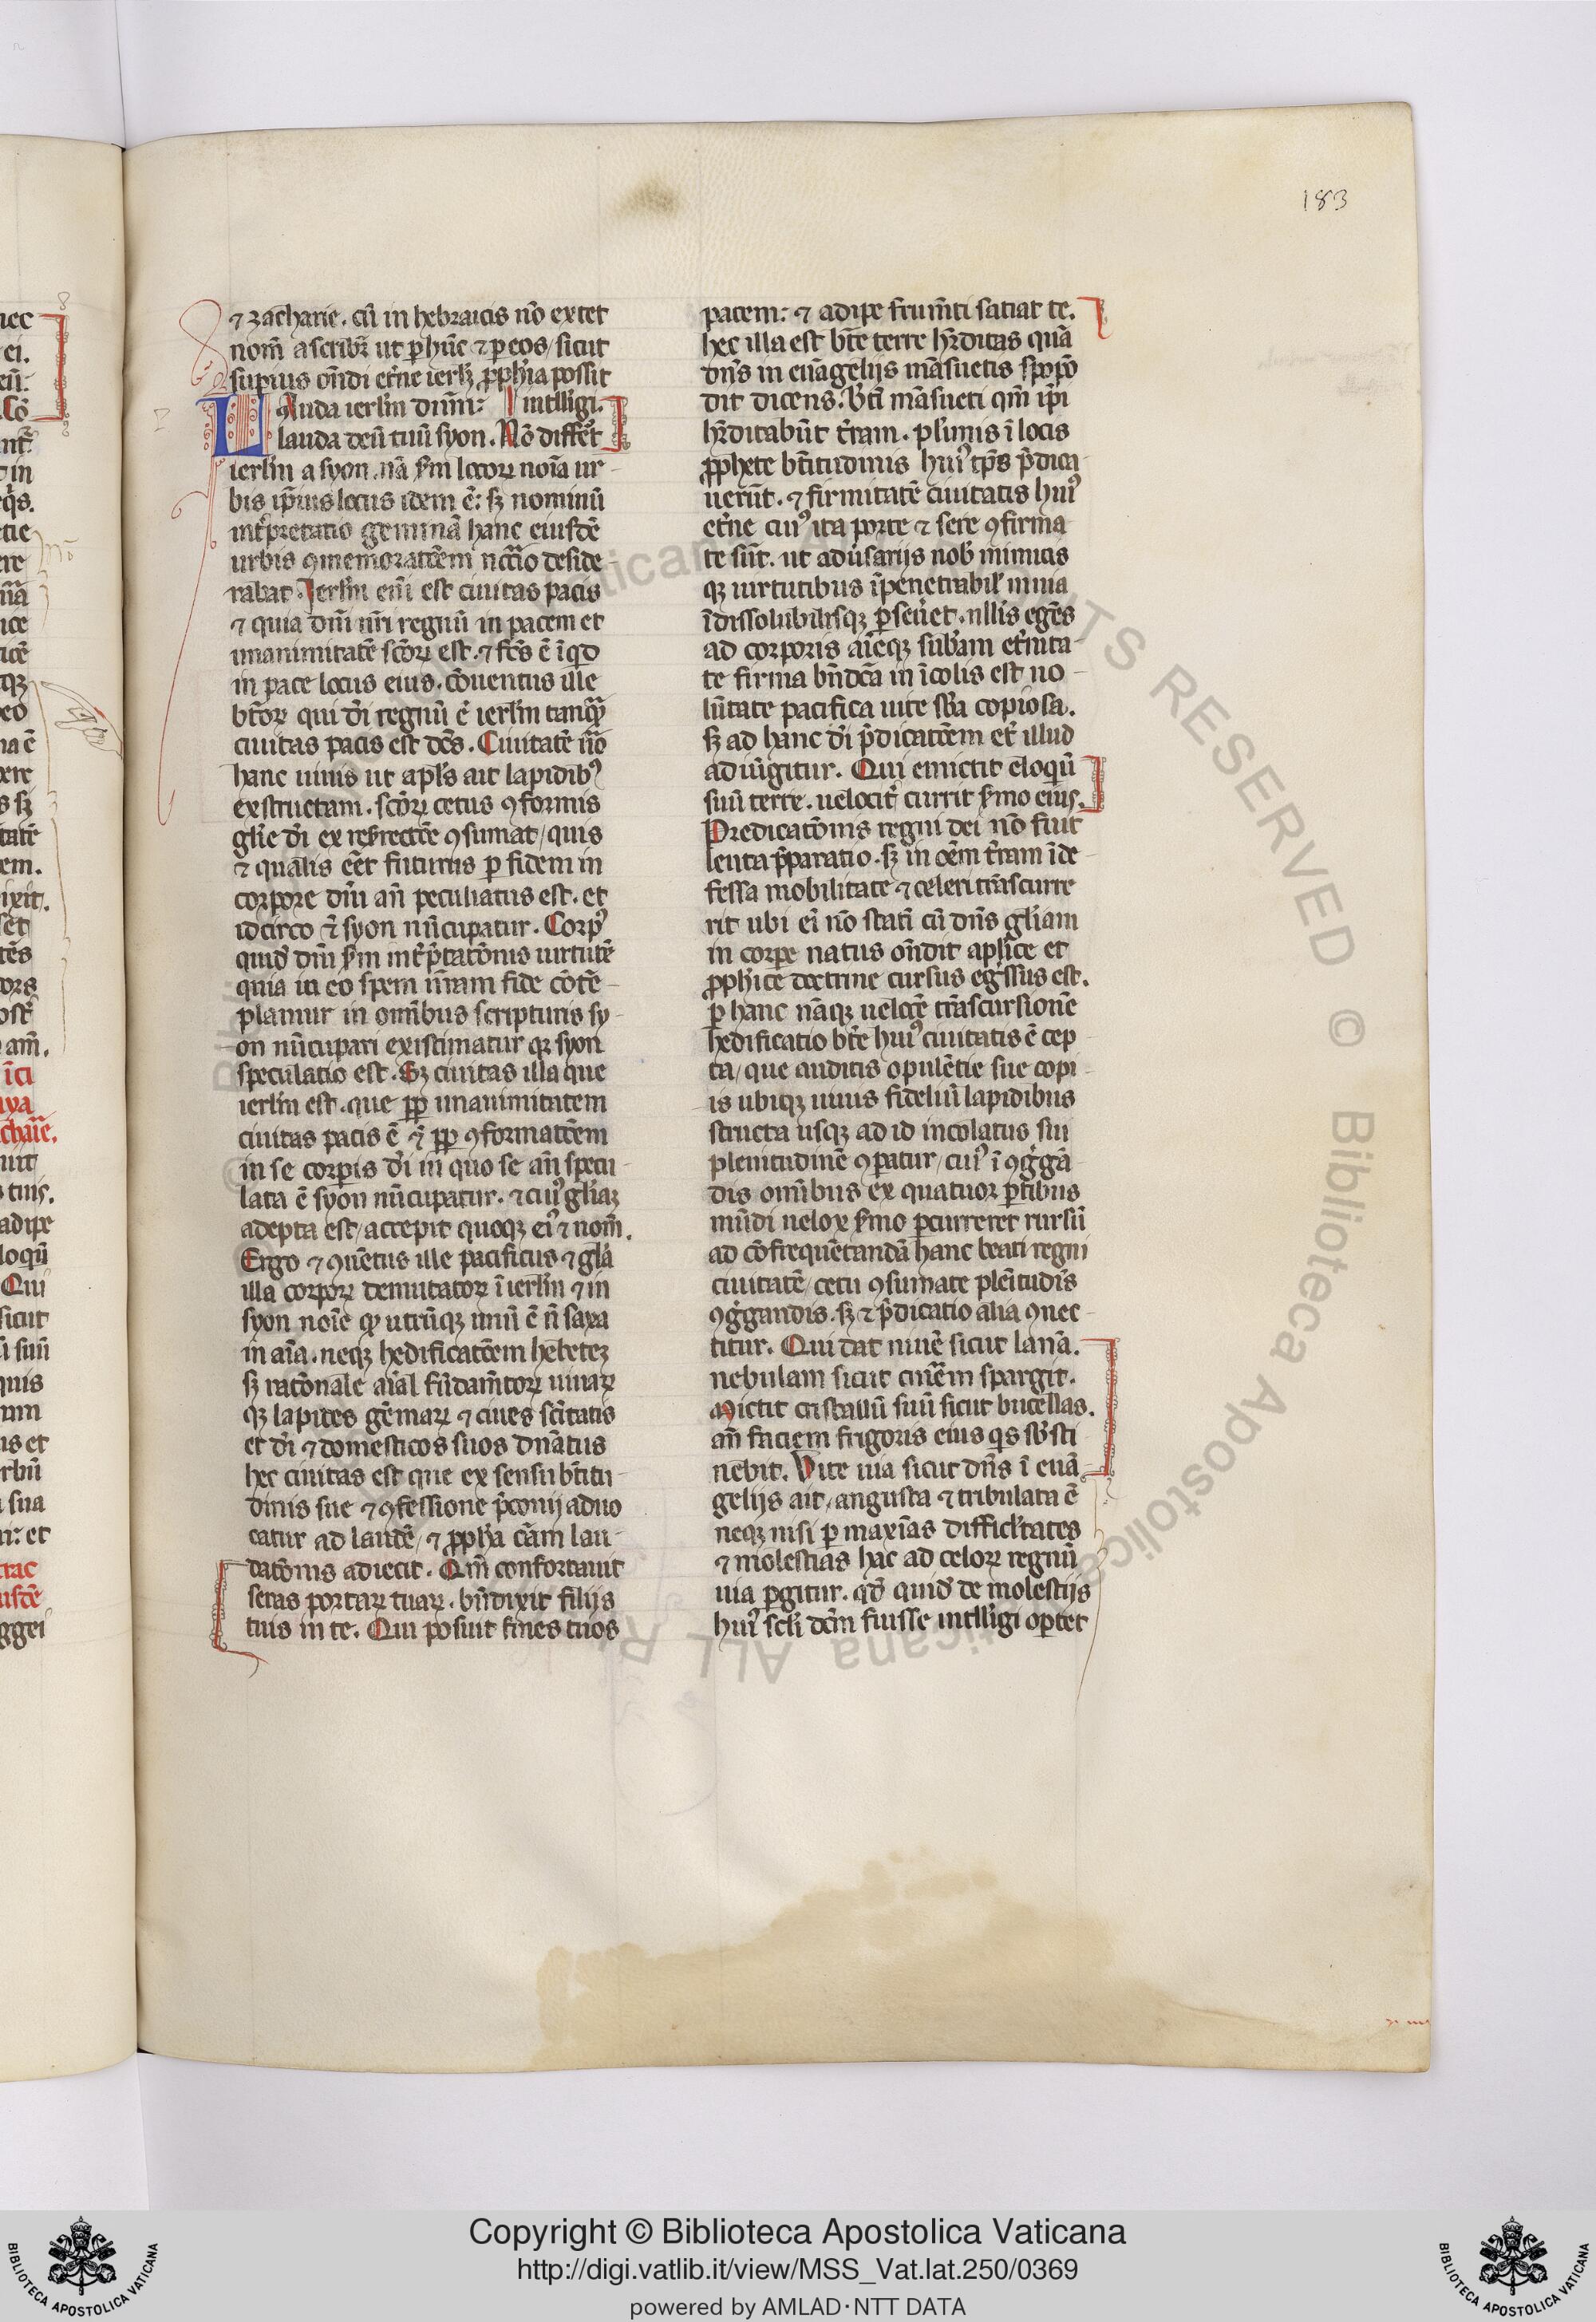 183
⁊ zacharie. cū in hebraicis nō extet
nom̄ ascribr̄ ut ꝑ hūc ⁊ ꝑ eos / sicut
supius on̄di et̄ne ierlꝫ ꝓpħia possit
Lauda ierl̄m dn̄m: intll̄igi.
lauda deū tuū syon. Nō differ̄t
ierl̄m a syon. nā s̄m locoꝝ noīa ur-
bis ip̄ius locus idem ē: sꝫ nominū
int̄pretatio geminā hanc eiusdē
urbis ꝯmemoratōem nc̄c̄io deside-
rabat. Ierl̄m eni̅ est ciuitas pacis
⁊ quia dn̄i nr̄i regnū in pacem et
unanimitatē sc̄oꝝ est. ⁊ fc̄s ē ī qd
in pace locus eius. cōuentus ille
bt̄oꝝ qui dī regnū ē ierl̄m tanqꝫ
ciuitas pacis est dc̄s. Ciuitatē u̅o
hanc uiuis ut apl̄s ait lapidibꝰ
exstructam. sc̄oꝝ cetus ꝯformis
gl̄ie dī ex resrrectōe ꝯsumat / quis
⁊ qualis eēt futurus ꝑ fidem in
corpore dn̄i an̄ peculiatus est. et
idcirco ⁊ syon nūcupatur. Corpꝰ
quid̄ dn̄i s̄m int̄p̄tatōnis uirtutē
quia in eo spem nr̄am fide cōtē-
plamur in omībus scripturis sy-
on nūcupari existimatur qꝫ syon
speculatio est. Sꝫ ciuitas illa que
ierl̄m est. que ꝓp unanimitatem
ciuitas pacis ē ⁊ ꝓp ꝯformatōem
in se corpis dī in quo se an̄ specu-
lata ē syon nūcupatur. ⁊ cuiꝰ gl̄iaꝫ
adepta est / accepit quoqꝫ eiꝰ ⁊ nom̄.
Ergo ⁊ ꝯuētus ille pacificus ⁊ gl̄a
illa corpoꝝ demutatoꝝ ī ierl̄m ⁊ in
syon noīe qꝫ utrūqꝫ unū ē n̄ saxa
in aīa. neqꝫ hedificatōem hebetēꝫ
sꝫ ratōnale aīal fūdam̄toꝝ uiuaꝝ
qꝫ lapides gēmaꝝ ⁊ ciues sc̄itatis
et dī ⁊ domesticos suos dn̄atus
hec ciuitas est que ex sensu bt̄itu-
dinis sue ⁊ ꝯfessione p̄conij aduo
catur ad laudē / ⁊ ꝓpħa cām lau-
datōnis adiecit. Qm̄ confortauit
seras portaꝝ tuaꝝ. bn̄dixit filijs
tuis in te. Qui posuit fines tuos
pacem: ⁊ adipe frum̄ti satiat te.
hec illa est bt̄e terre hr̄ditas quā
dn̄s in euāgelijs māsuetis spopō
dit dicens. Bt̄i māsueti qm̄ ip̄i
hr̄ditabūt t̄ram. plurīmis ī locis
ꝓphete bt̄itudinis huiꝰ tp̄s p̄dica-
uerūt. ⁊ firmitatē ciuitatis huiꝰ
et̄ne cuiꝰ ita porte ⁊ sere ꝯfirma
te sūt. ut adūsarijs nob̄ inimicis
qꝫ uirtutibus īpenetrabil̄ inuia
īdissolubilisqꝫ ꝑseūet. nllīs egēs
ad corporis aīeqꝫ sub̄am et̄nita-
te firma bn̄dc̄a in īcolis est uo-
lūtate pacifica uite sb̄a copiosa.
sꝫ ad hanc dī p̄dicatōem et̄ illud
adiūgitur. Qui emictit eloqū
suū terre. uelocit̄ currit s̄mo eius.
Predicatōnis regni dei nō fuit
lenta p̄paratio. sꝫ in oēm t̄ram īde-
fessa mobilitate ⁊ celeri trāscurre
rit ubi ei̅ nō stati̅ cū dn̄s gl̄iam
in corpe natus on̄dit apl̄ice et
ꝓpħice doctrine cursus eg̅ssus est.
ꝑ hanc nāqꝫ uelocē trāscursionē
hedificatio bt̄e huiꝰ ciuitatis ē cep
ta / que auditis opulētie sue copi-
is ubiqꝫ uiuis fideliū lapidibus
structa usqꝫ ad id incolatus sui
plenitudinē ꝯpatur / cuiꝰ ī ꝯg̅gā-
dis omībus ex quatuor ꝑtibus
mūdi uelox s̄mo ꝑcurreret rursū
ad cōfrequētandā hanc beati regni
ciuitatē / cetu ꝯsumate plēitudīs
ꝯg̅gandis. sꝫ ⁊ p̄dicatio alia ꝯnec-
titur. Qui dat niuē sicut lanā.
nebulam sicut cinr̄em spargit.
Mictit cristallū suū sicut bucellas.
an̄ faciem frigoris eius qs sb̄sti
nebit. Vite uia sicut dn̄s ī euā-
gelijs ait / angusta ⁊ tribulata ē
neqꝫ nisi ꝑ maxīas difficl̄tates
⁊ molestias hac ad celoꝝ regnū
uia ꝑgitur. qd̄ quid̄ de molestijs
huiꝰ scl̄i dc̄m fuisse intll̄igi optet
Copyright © Biblioteca Apostolica Vaticana
http://digi.vatlib.it/view/MSS_Vat.lat.250/0369
powered by AMLAD·NTT DATA